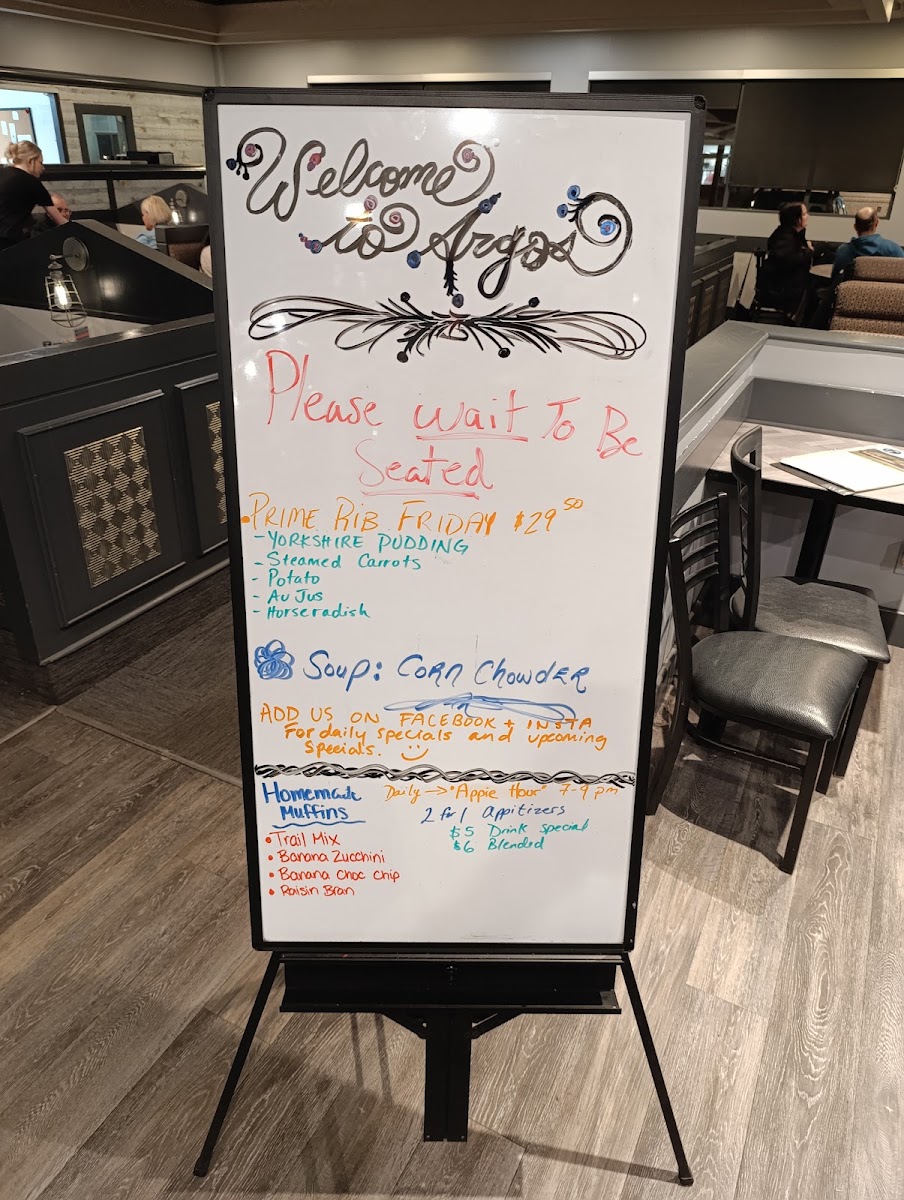 Welcome
to Argos
Please wait To Be
Seated
• PRIME RIB FRIDAY $29 50
- YORKSHIRE PUDDING
- Steamed Carrots
- Potato
- Au Jus
- Horseradish
Soup: CORN CHOWDER
ADD US ON FACEBOOK + INSTA
For daily specials and upcoming
Specials.
Homemade
Muffins
• Trail Mix
• Banana Zucchini
• Banana Choc Chip
• Raisin Bran
Daily → "Appie Hour" 7-9 pm
2 for 1 appitizers
$5 Drink special
$6 Blended